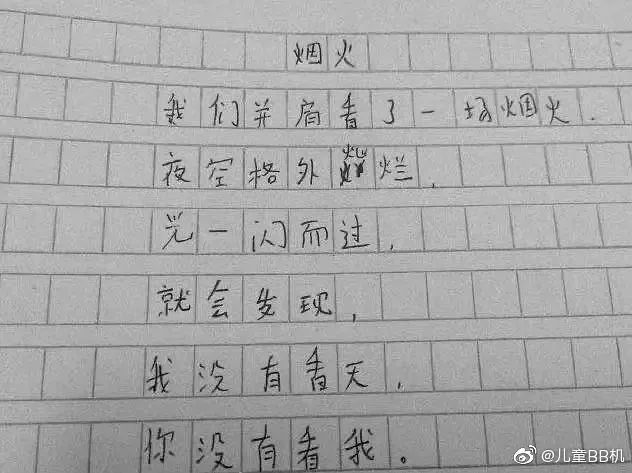 烟火
我们并肩看了一场烟火.
夜空格外灿烂,
光一闪而过,
就会发现,
我没有看天,
你没有看我。
@儿童BB机